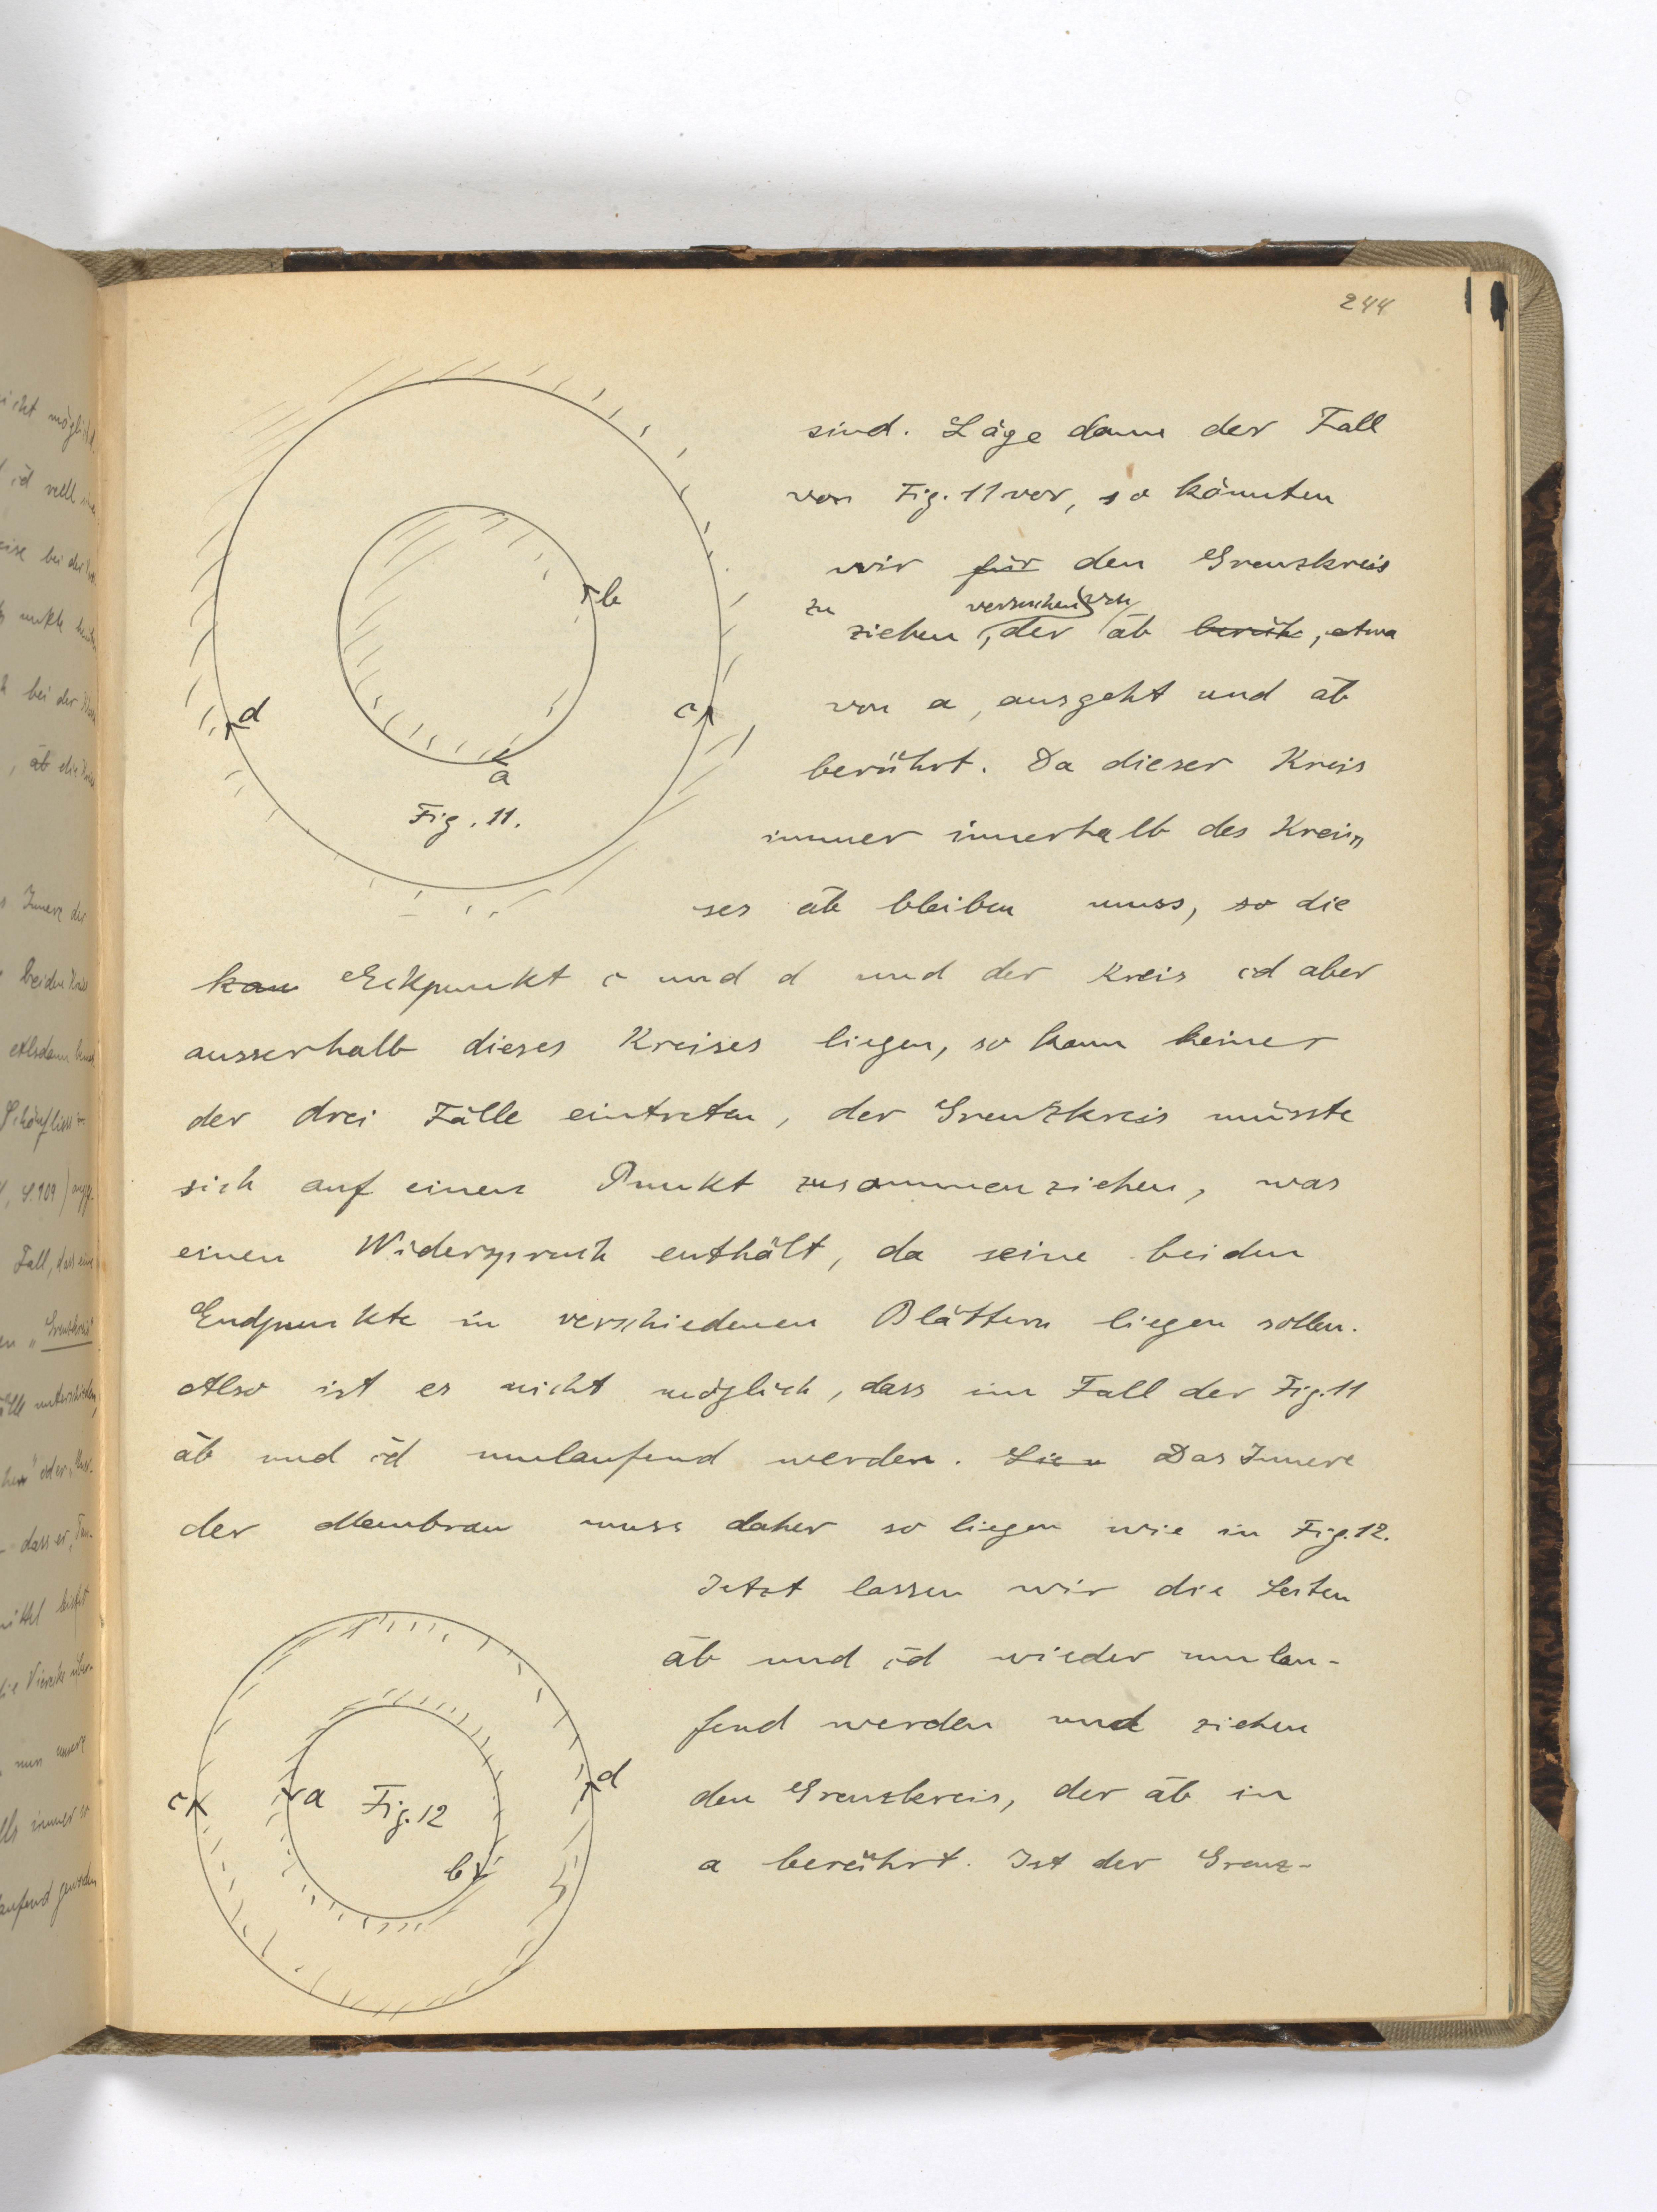 244
sind. Läge dann der Fall
von Fig. 11 vor, so könnten
wir für den Grenzkreis
zu versuchen
ziehen, der a͞b berüh, etwa
von a, ausgeht und a͞b
berührt. Da dieser Kreis
immer innerhalb des Krei„
ses a͞b bleiben muss, so die
kan Eckpunkt c und d und der Kreis cd aber
ausserhalb dieses Kreises liegen, so kann keiner
der drei Fälle eintreten, der Grenzkreis müsste
sich auf einen Punkt zusammenziehen, was
einen Widerspruch enthält, da seine beiden
Endpunkte in verschiedenen Blättern liegen sollen.
Also ist es nicht möglich, dass im Fall der Fig. 11
a͞b und c͞d umlaufend werden. Das Innere
der Membran muss daher so liegen wie in Fig. 12.
Jetzt lassen wir die Seiten
a͞b und c͞d wieder umlau-
fend werden und ziehen
den Grenzkreis, der a͞b in
a berührt. Ist der Grenz-
b
d
c
a
Fig. 11.
d
c
a
Fig. 12
b